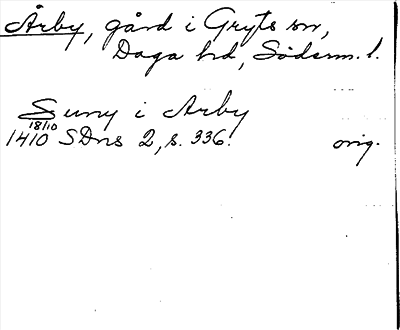 Årby, gård i Gryts sn,
Daga hd, Söderm. l.
Suny i Arby
18/10
1410 SDns 2, s. 336. orig.